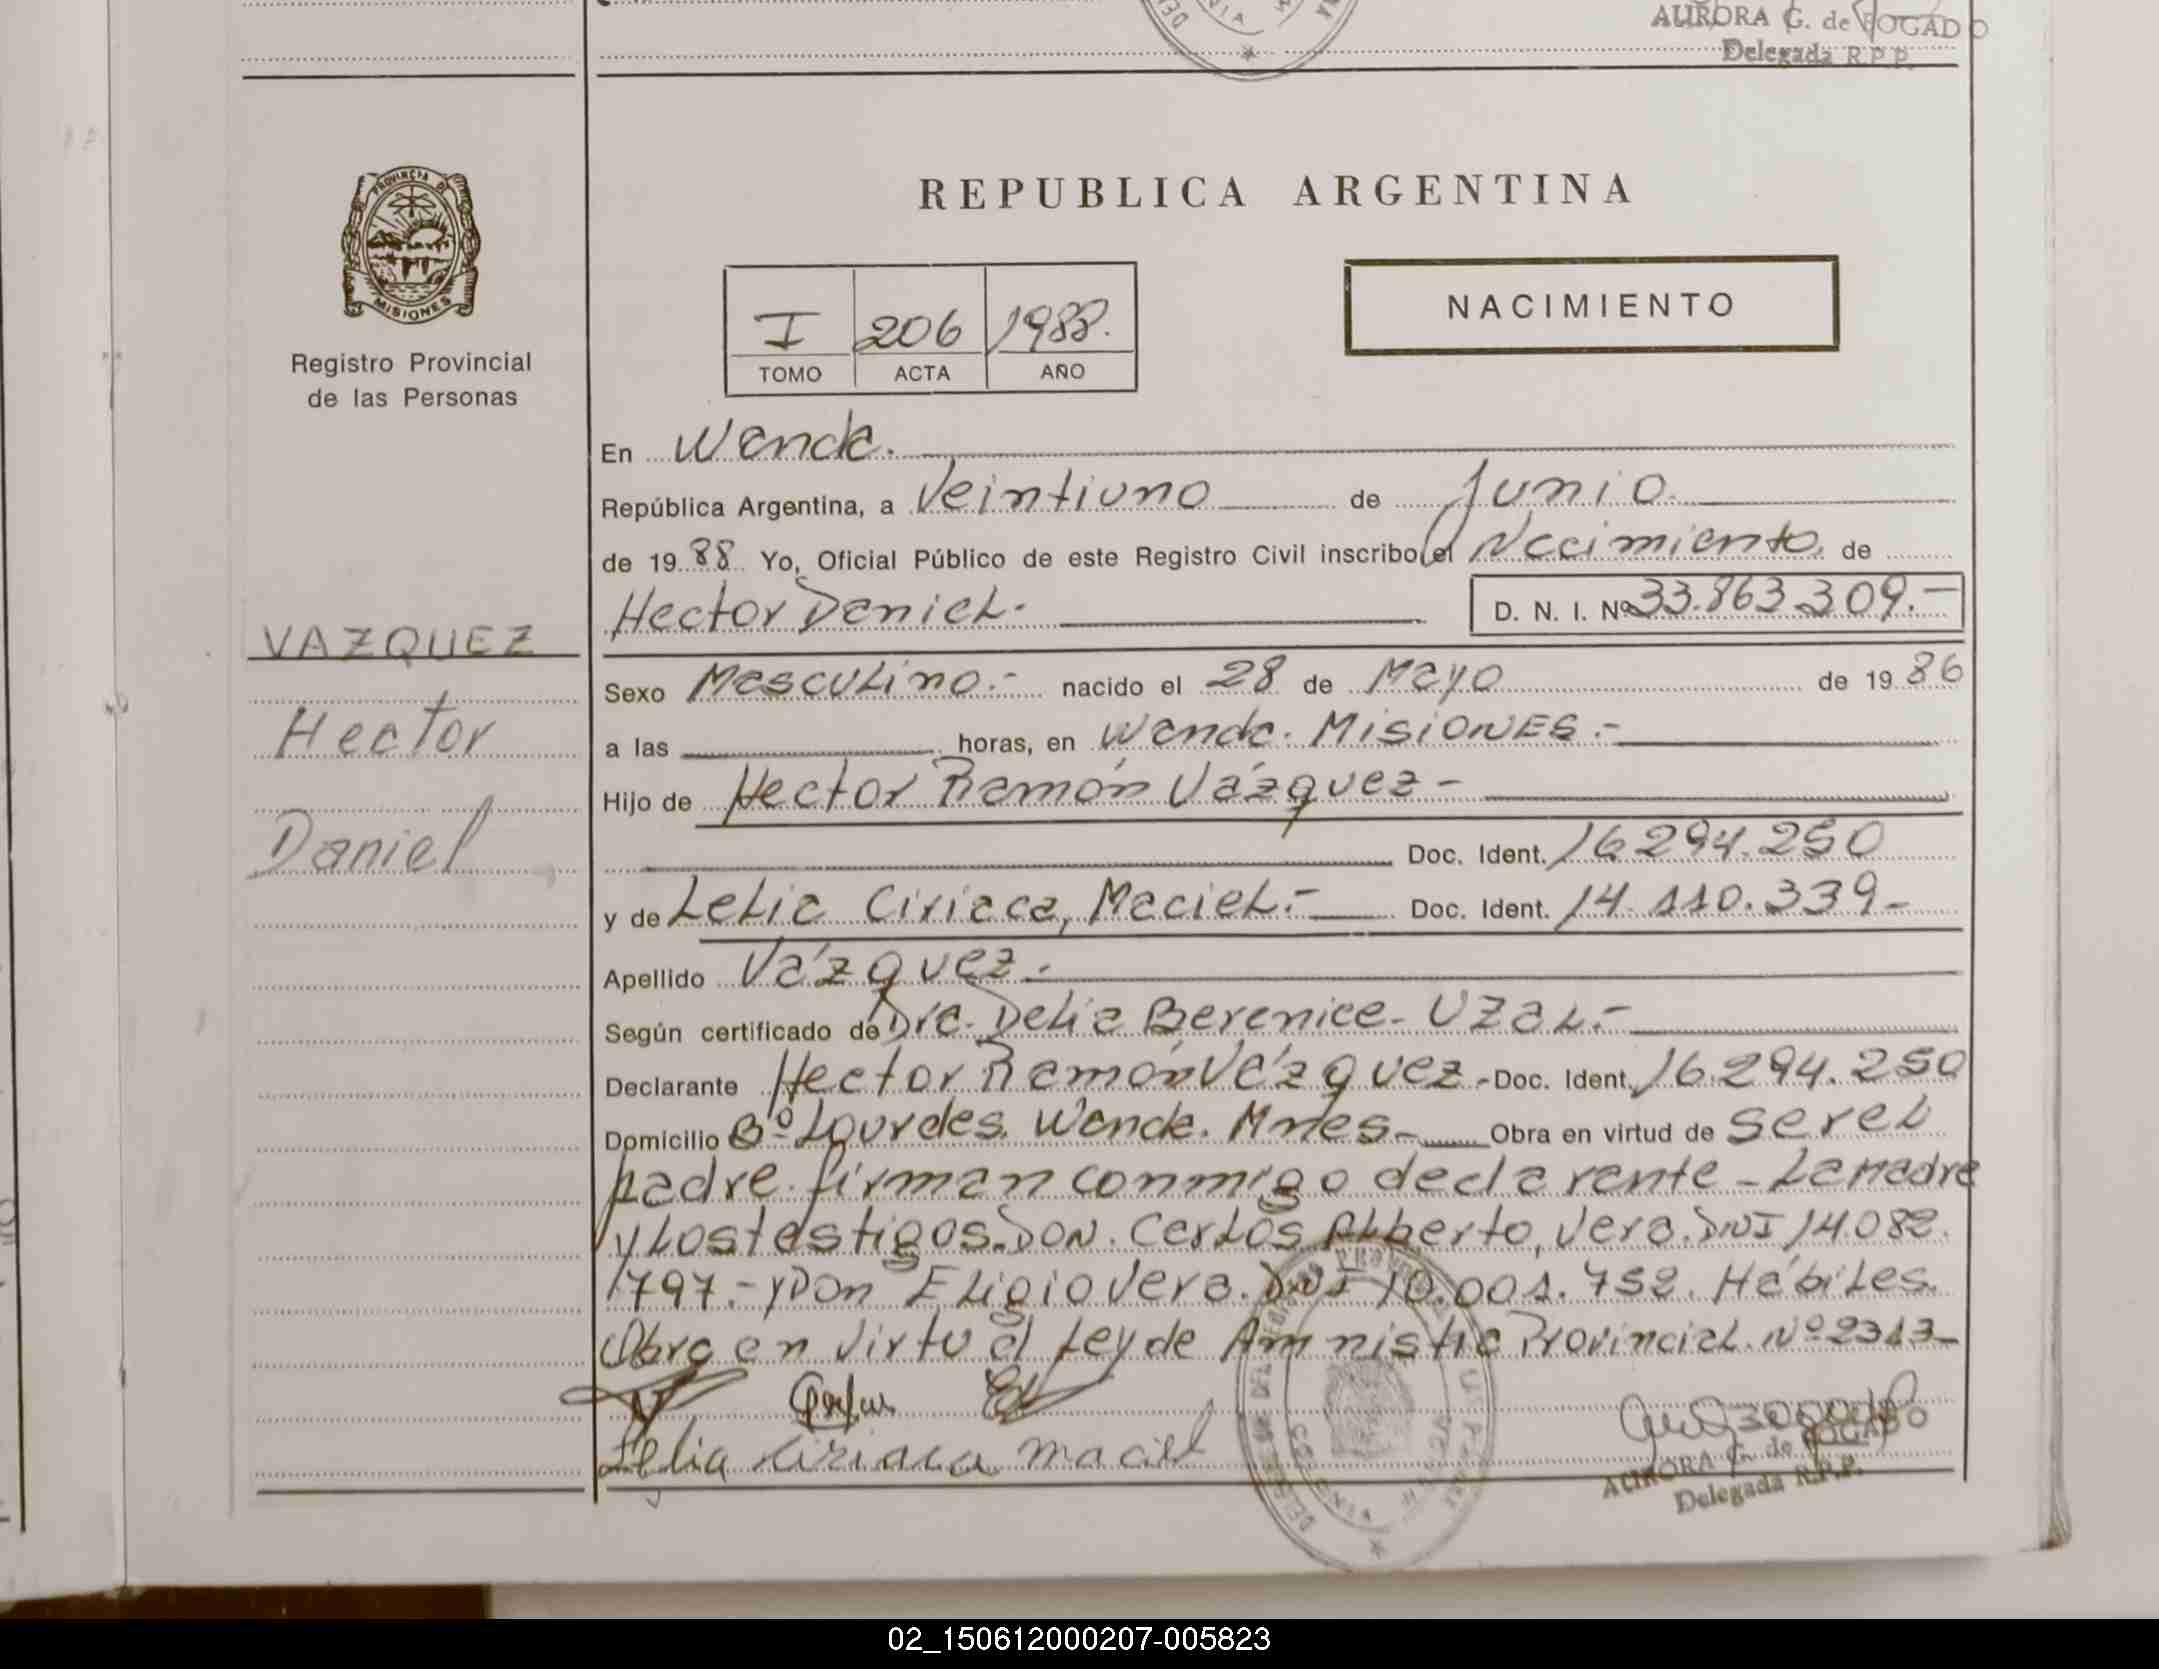 AURORA G. de POGADO
Delegada R.P.P.
PROVINCIA DE
MISIONES
Registro Provincial
de las Personas
REPUBLICA ARGENTINA
I 206 1988.
TOMO ACTA AÑO
NACIMIENTO
En Wanda.
República Argentina, a Veintiuno de Junio
de 1988 Yo, Oficial Público de este Registro Civil inscribo el Nacimiento de
Hector Daniel.- D. N. I. Nº 33.863.309.-
VAZQUEZ
Hector
Daniel
Sexo Masculino.- nacido el 28 de Mayo de 1986
a las horas, en Wanda. Misiones.-
Hijo de Hector Ramón Vázquez-
Doc. Ident. 16.294.250
y de Lelia Ciriaca, Maciel.- Doc. Ident. 14.110.339-
Apellido Vázquez.-
Según certificado de Dra. Delia Berenice- Uzal.-
Declarante Hector Ramón Vázquez.- Doc. Ident. 16.294.250
Domicilio Bº Lourdes. Wanda. Mnes- Obra en virtud de ser el
padre. firman conmigo declarante - La Madre
y Los testigos. Don. Carlos Alberto, Vera. DNI 14.082.
797.- y Don Eligio Vera. DNI 10.001.752. Hábiles.
Obra en Virtud Ley de Amnistia Provincial. Nº 2313-
Lelia Ciriaca Maciel
AURORA G. de POGADO
Delegada R.P.P.
02_150612000207-005823